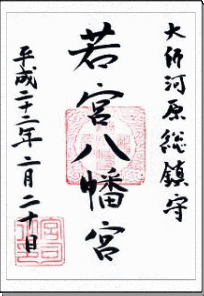 大師河原総鎮守
若宮八幡宮
平成二十二年二月二十日